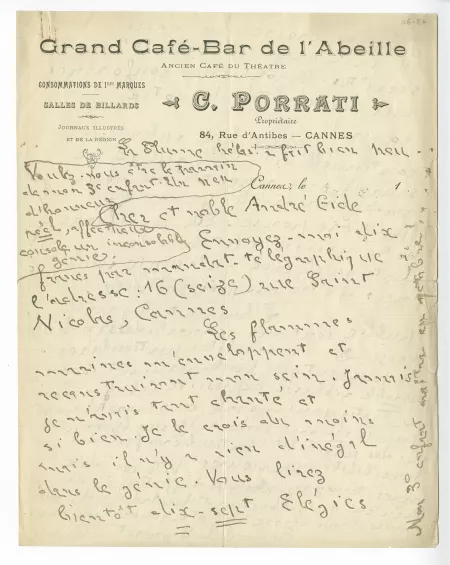 Grand Café-Bar de l'Abeille
ANCIEN CAFÉ DU THÉATRE
CONSOMMATIONS DE 1res MARQUES
SALLES DE BILLARDS
JOURNAUX ILLUSTRÉS
ET DE LA RÉGION
C. PORRATI
Propriétaire
84, Rue d'Antibes — CANNES
hélas! bien peu
Voulez-vous être le parrain
de mon 3e enfant. Un peu
d'honneur
réel, affectueux
console un inconsolable
génie.
Cannes, le 1
Cher et noble André Gide
Envoyez-moi dix
francs par mandat-télégraphique à
l'adresse: 16 (seize) rue Saint
Nicolas Cannes
Les flammes
m'enveloppent et
mon sein. Jamais
je n'avais tant chanté et
si bien. Je le crois du moins
mais il n'y a rien d'inégal
dans le génie. Vous lirez
bientôt dix-sept Elégies
Mon 3e enfant